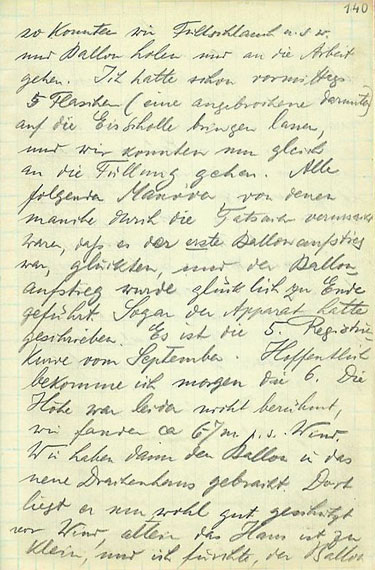 140
so konnten wir Füllschlauch u. s. w.
und Ballon holen und an die Arbeit
gehen. Ich hatte schon vormittags
5 Flaschen (eine angebrochene darunter)
auf die Eisscholle bringen lassen,
und wir konnten nun gleich
an die Füllung gehen. Alle
folgenden Manöver, von denen
manche durch die Tatsache verursacht
waren, daß es der erste Ballonaufstieg
war, glückten, und der Ballon-
aufstieg wurde glücklich zu Ende
geführt. Sogar der Apparat hatte
geschrieben. Es ist die 5. Registrier-
kurve vom September. Hoffentlich
bekomme ich morgen die 6. Die
Höhe war leider nicht berühmt,
wir fanden ca 6 m p. s. Wind.
Wir haben dann den Ballon in das
neue Drachenhaus gebracht. Dort
liegt er nun wohl gut geschützt
vor Wind, allein das Haus ist zu
klein, und ich fürchte, der Ballon